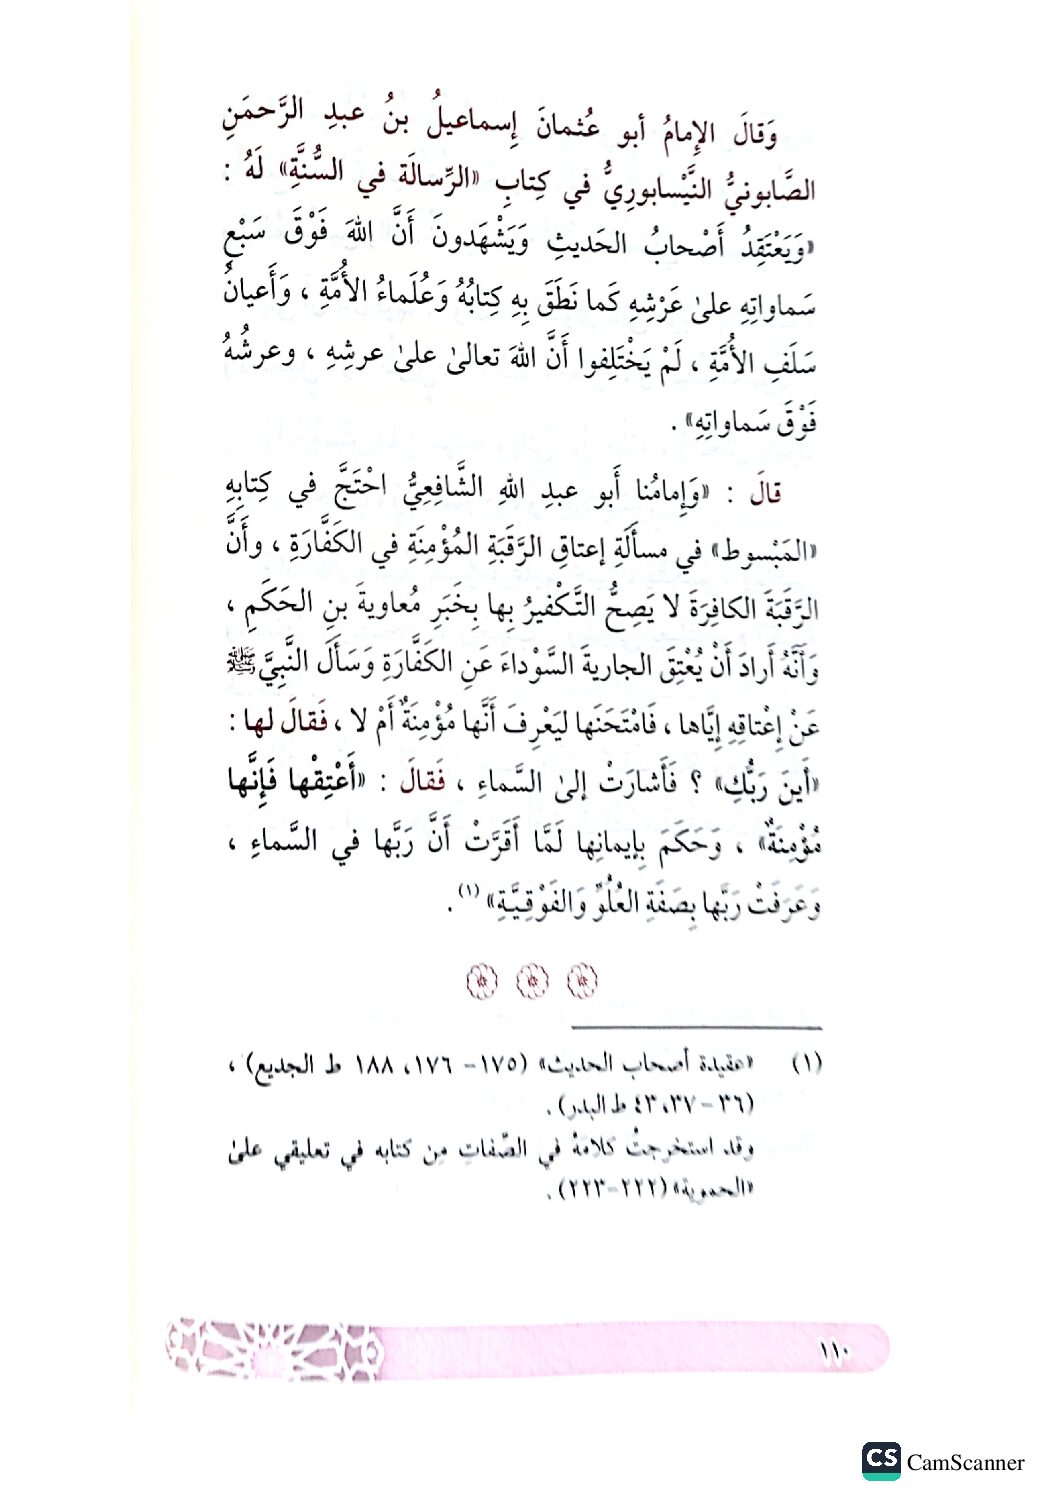 وَقالَ الإِمامُ أبو عُثمانَ إِسماعيلُ بنُ عبدِ الرَّحمَنِ
الصَّابونيُّ النَّيْسابورِيُّ في كِتابِ «الرِّسالَة في السُّنَّةِ» لَهُ :
«وَيَعْتَقِدُ أَصْحابُ الحَديثِ وَيَشْهَدونَ أَنَّ اللهَ فَوْقَ سَبْعِ
سَماواتِهِ علىٰ عَرْشِهِ كَما نَطَقَ بِهِ كِتابُهُ وَعُلَماءُ الأُمَّةِ ، وَأَعيانُ
سَلَفِ الأُمَّةِ ، لَمْ يَخْتَلِفوا أَنَّ اللهَ تعالىٰ علىٰ عرشِهِ ، وعرشُهُ
فَوْقَ سَماواتِهِ» .
قالَ : «وَإِمامُنا أَبو عبدِ اللهِ الشَّافِعِيُّ احْتَجَّ في كِتابِهِ
«المَبْسوط» في مسأَلَةِ إعتاقِ الرَّقَبَةِ المُؤْمِنَةِ في الكَفَّارَةِ ، وأَنَّ
الرَّقَبَةَ الكافِرَةَ لا يَصِحُّ التَّكْفيرُ بِها بِخَبَرِ مُعاويةَ بنِ الحَكَمِ ،
وَأَنَّهُ أَرادَ أَنْ يُعْتِقَ الجاريةَ السَّوْداءَ عَنِ الكَفَّارَةِ وَسَأَلَ النَّبِيَّ ﷺ
عَنْ إِعْتاقِهِ إِيَّاها ، فَامْتَحَنَها لِيَعْرِفَ أَنَّها مُؤْمِنَةٌ أَمْ لا ، فَقالَ لها :
«أَينَ رَبُّكِ» ؟ فَأَشارَتْ إلىٰ السَّماءِ ، فَقالَ : «أَعْتِقْها فَإِنَّها
مُؤْمِنَةٌ» ، وَحَكَمَ بِإِيمانِها لَمَّا أَقَرَّتْ أَنَّ رَبَّها في السَّماءِ ،
وَعَرَفَتْ رَبَّها بِصَفَةِ العُلُوِّ وَالفَوْقِيَّةِ» (١).
(١) «عقيدة أصحاب الحديث» (١٧٥– ١٧٦، ١٨٨ ط الجديع) ،
(٣٦ –٣٧، ٤٣ ط البدر) .
وقد استخرجتُ كلامهُ في الصِّفاتِ مِن كتابه في تعليقي علىٰ
«الحموية» (٢٢٢–٢٢٣) .
١١٠
CS CamScanner